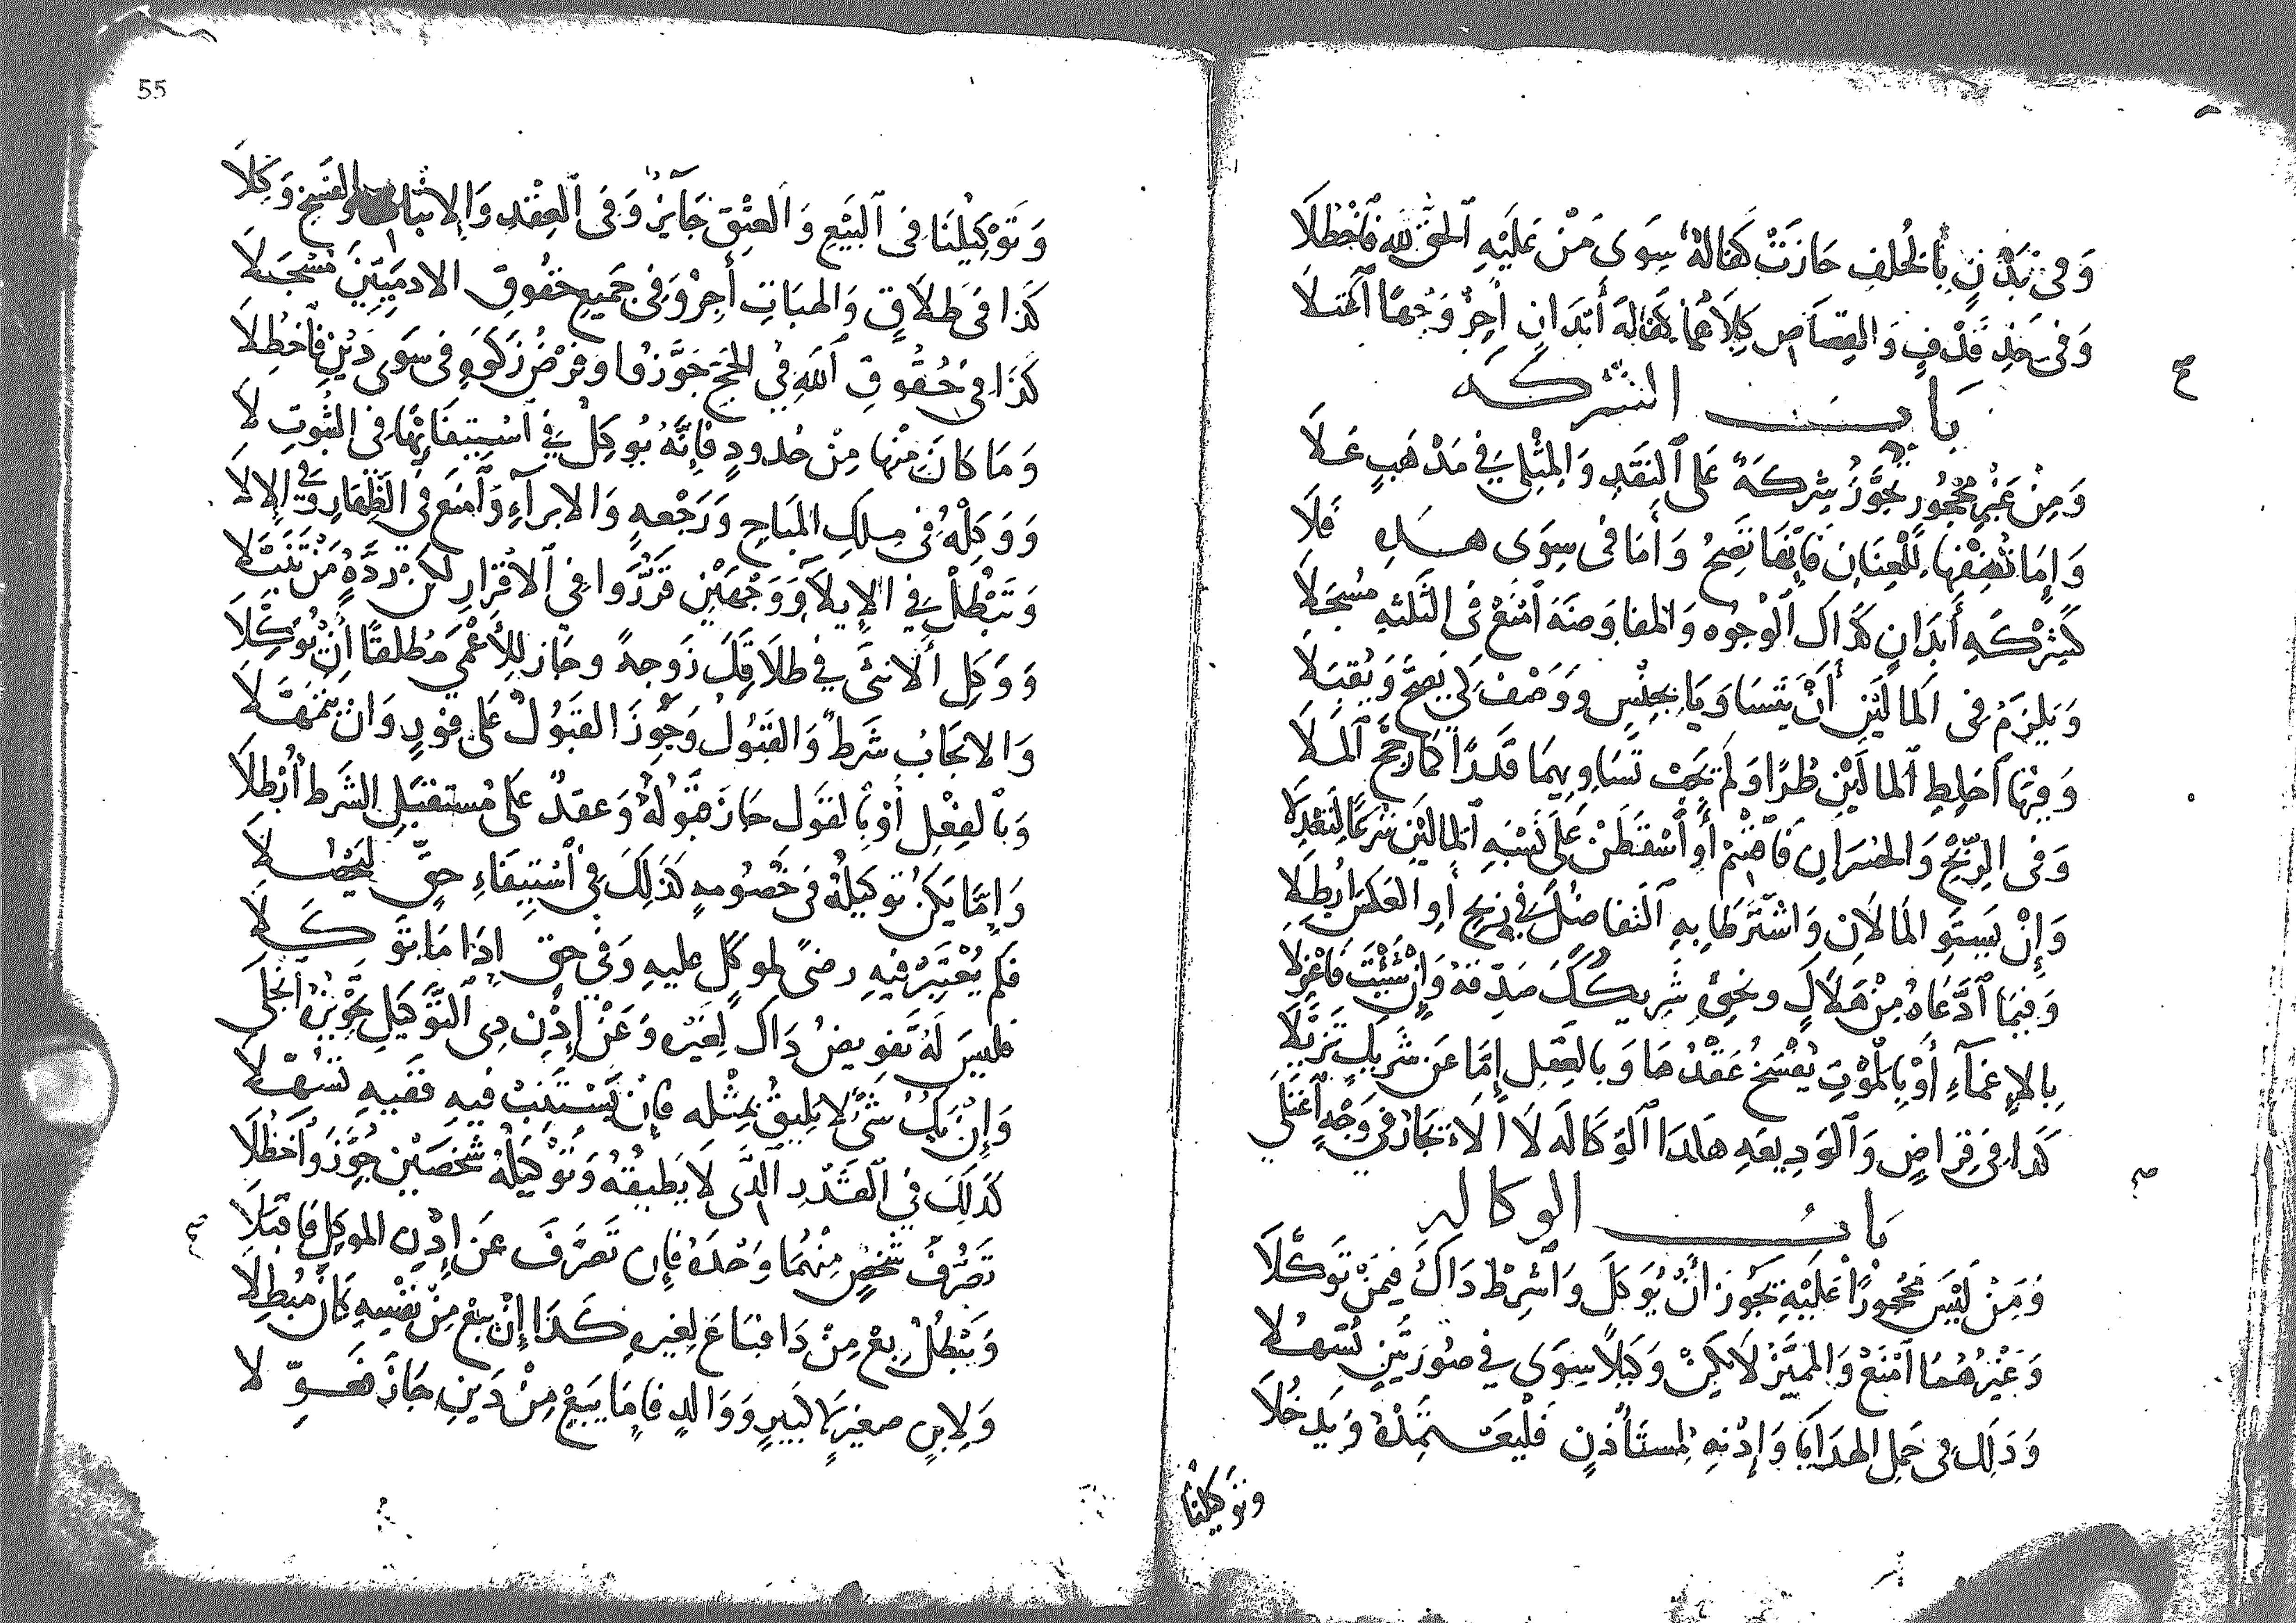 وَفِى بَدَنٍ بِالْخُلفِ جَازَتْ كفَالةٌ سِوَى مَنْ عَلَيْهِ الحقُّ لله فَاخْطُلَا
وَفى حَدِّ قَذْفٍ وَالقِصَاصِ كِلَاهُمَا كفالةَ أَبْدَانٍ أَجِزْ وَجْهًا اَعْتَلَا
بَابُ الشركه
وَمِنْ غَيْرِ مَحْجُورٍ تَجَوَّزُ شِركَةٌ عَلَى النَّقْدِ وَالمِثْلِي فِي مَذْهَبٍ عَلَا
وَإِمَّا تُضِفْهَا لِلْعِنَانِ فَإِنَّهَا تَصِحُّ وَأَمَّا فى سِوَى هذهِ فَلَا
كَشِرْكَةِ أَبْدَانٍ كَذَاك الْوُجُوه وَالمفاوضَة اَمْنَعْ فى الثَّلثهِ مُسْجَلَا
وَيَلْزَمُ فى المالَيْنِ أَنْ يَتَسَاوَيَا بِجِنْسٍ وَوَصْفٍ كَي يَصِحَّ وَيُقْبَلَا
وَفِيهَا اَخلِطِ المالَيْنِ طُرًّا وَلَمْ يَجِبْ تَسَاوِيهِمَا قَدْرًا كمَا رَجَّحَ الملَا
وَفى الرِّبْحِ وَالخسْرَانِ فَاقْسِمْ أَوْ أَسْقِطَنْ عَلَى نِسْبَةِ المالَيْنِ شَرعًا لِتَعْدِلَا
وَإِنْ يَسْتَوِ المالَانِ وَاشْتَرَطا بِهِ التَّفَاضُلَ فى رِبْحٍ أَوِ العكسَ ابْطِلَا
وَفِيمَا اَدَّعَاهُ مِنْ هَلَاكٍ وَنحوِهِ شَرِيكُكَ صَدِّقهُ وَإِنْ شِئْتَ فَاعْزِلَا
بِالإِغْمَاءِ أَوْ بِالْمَوْتِ يُفْسَخُ عَقْدُهَا وَبالعَقْلِ إِمَّا عَن شَرِيكٍ تَزَيَّلَا
كَذا فى قِرَاضٍ وَالْوَدِيعَهِ هكذا الْوَكَالَه لَا الا تجَازُ فى وَجْهٍ اَعْتَلَى
بابُ الوكاله
وَمَنْ لَيْسَ مَحْجُورًا عَلَيْهِ تَجَوَّزَ أَنْ يُوَكِّلَ وَاشْرِطْ ذَاكَ فِيمَنْ تَوَكَّلَا
وَغَيْرُهُمَا اَمْنَعْ وَالمميِّزُ لَا يَكُنْ وَكِيلًا سِوَى فى صُورَتَيْنِ تَسَهَّلَا
وَذَلِكَ فى حَمْلِ الهدَايَا وَإِذْنِهِ لمستَأْذِنٍ فَلْيَعْتَمِدْهُ وَيَدْخُلَا
وتوكيلنا
55
وَتَوْكِيلُنَا فى الْبَيْعِ وَالْعِتْقِ جَايِزٌ وَفى الْعِقْدِ وَالاثْبَات وَالفَسْخِ وَكِّلَا
كَذَا فى طَلَاقٍ وَالهِبَاتِ أَجِزْ وَفى جَمِيعِ حُقُوقِ الادمِيِّينَ مُسْجَلَا
كَذَا فى حُقُوقِ اللهِ فى الحجِّ جَوَّزُوا وَفَرْضِ زَكوةٍ فى سِوَى ذَيْنِ فَاخْطُلَا
وَمَا كَانَ مِنْهَا مِنْ حُدودٍ فَإِنَّهُ يُوَكِّلُ فى اسْتِيفَائِهَا فى الثُّبُوتِ لَا
وَوَكِّلْهُ فى مِلكِ المُبَاحِ وَرَجْعةٍ وَالابرَآءِ وَاَمْنَعْ فى الظِّهَارِ وَفى الإِلَا
وَتَبْطُلُ فى الإِيلَا وَوَجْهَيْنِ قَرَّرُوا فى الاقْرَارِ لكن رَدَّهُ مَنْ تَنَبَّلَا
وَوَكِّلِ الأُنثى فى طَلَاقِكَ زَوجةً وجَاز لِلْأَعْمَى مُطْلقًا أَنْ تُوَكِّلَا
وَالايجَابُ شَرطٌ وَالقَبُولُ وَجَوِّزَ القَبُولَ عَلَى فَوْرٍ وَانْ يَتَمَهَّلَا
وَبالفِعْلِ أَوْ بِالقَولِ جَازَ قبُولُهُ وَعقدٌ عَلَى مُستَقبَلِ الشَّرطِ أَبْطِلَا
وَإِمَّا يَكُنْ تَوكيلُهُ فى خُصُومةٍ كَذَلِكَ فى اسْتِيفَاءِ حَقٍّ لِيَحْصُلَا
فَلَمْ يُعْتَبَرْ فِيهِ رِضىً لموكَّلٍ عليهِ وَفى حقٍّ إِذَا مَا تَوَكَّلَا
فليسَ لَهُ تَفوِيضُ ذَاك لِغَيْرِه وَعَنْ إِذْنِ ذِى التَّوكِيلِ تَجْوِيزُهُ انجلَى
وَإِنْ يَكُ شَئٌ لَا يَلِيقُ بِمِثْلِه فَإِنْ تَسْتَنِبْ فيهِ فَفيهِ تَسَهَّلَا
كَذَلِكَ فى القَدْرِ الَّذِى لَا يُطيقُهُ وَتَوْكيلُهُ شَخْصَيْنِ جَوَّزَ وَاخْطُلَا
تَصَرُّفَ شَخْصٍ مِنْهُمَا وَحْدَهُ فَإِن تَصَرَّفَ عَن إِذْنِ الموكِّلِ فَاقْبَلَا
وَيَبْطُلُ بِعْ مِنْ ذَا فبَاعَ لِغَيرِهِ كَذَا إِنْ يَبِعْ مِنْ نَفْسِهِ كَانَ مُبْطِلَا
وَلِابنٍ صغيرٍ لَا كبيرٍ وَوَالدٍ فَإِمَّا يَبِعْ مِنْ ذَيْنِ جَازَ فَعَوِّلَا